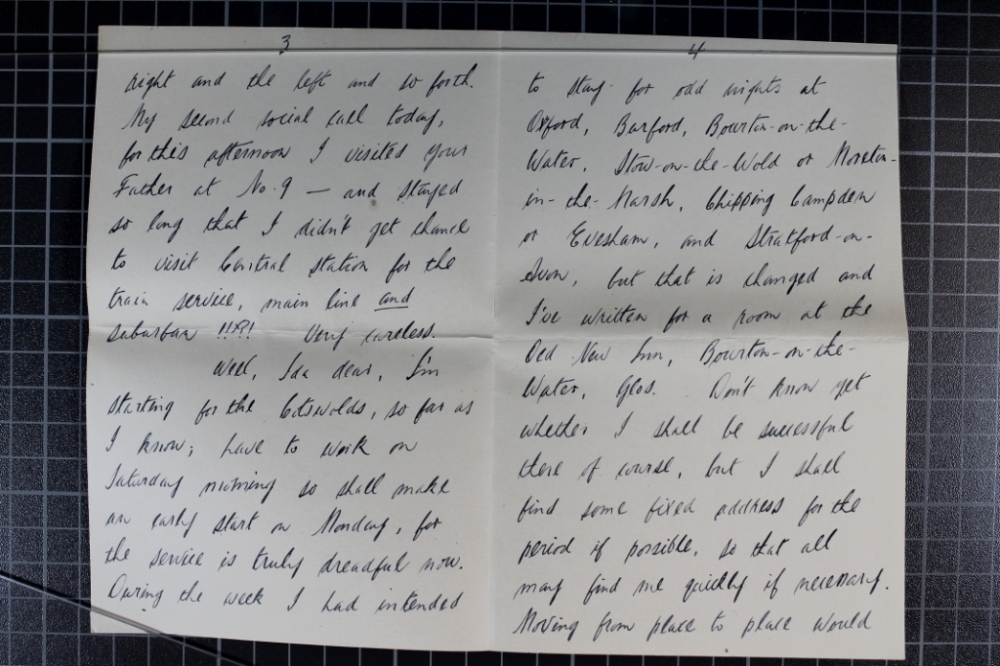 3
right and the left and so forth.
My second social call today,
for this afternoon I visited your
Father at No. 9 — and stayed
so long that I didn't get chance
to visit Central Station for the
train service, main line and
suburban !!!?! Very careless.
Well, Ida dear, I'm
starting for the Cotswolds, so far as
I know; have to work on
Saturday morning so shall make
an early start on Monday, for
the service is truly dreadful now.
During the week I had intended
4
to stay for odd nights at
Oxford, Burford, Bourton-on-the-
Water, Stow-on-the-Wold or Moreton-
in-the-Marsh, Chipping Campden
or Evesham, and Stratford-on-
Avon, but that is changed and
I've written for a room at the
Old New Inn, Bourton-on-the-
Water, Glos. Don't know yet
whether I shall be successful
there of course, but I shall
find some fixed address for the
period if possible, so that all
may find me quickly if necessary.
Moving from place to place would